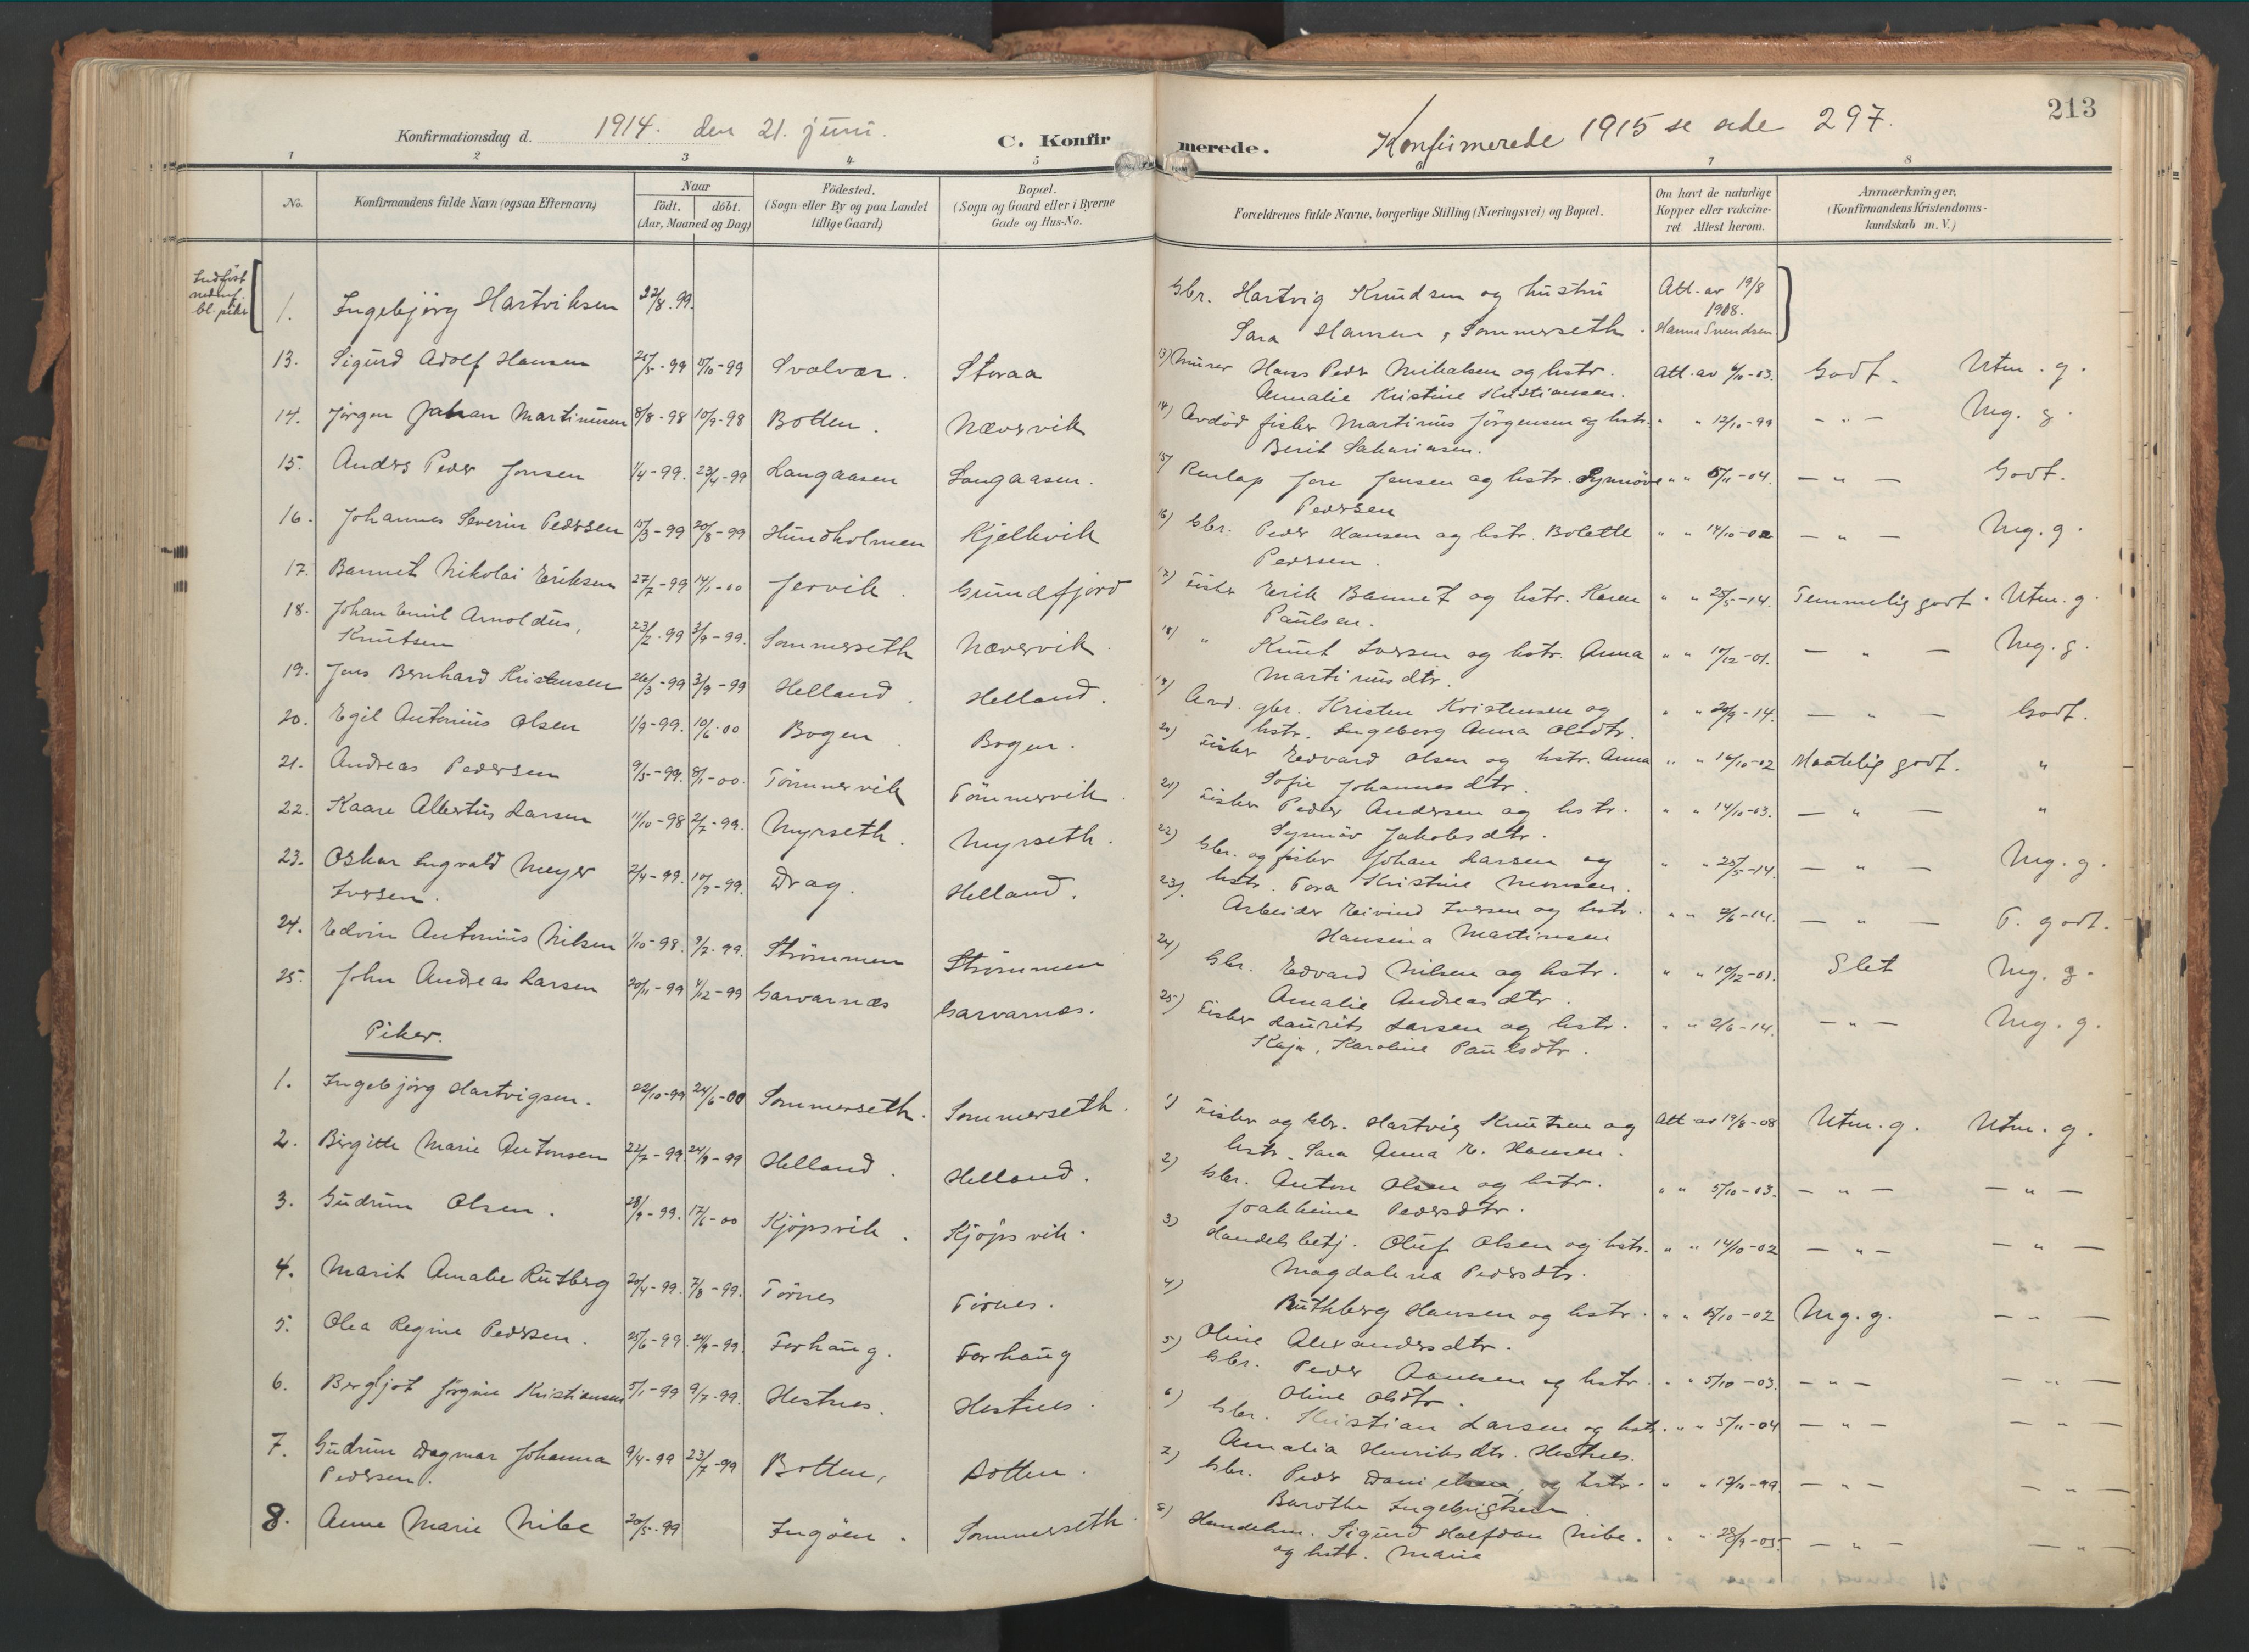 213
Konfirmationsdag d. 1914. den 21. juni. C. Konfir
merede. Konfirmerede 1915 se side 297.
1 2 3 4 5 6 7 8
No. Konfirmandens fulde Navn (ogsaa Efternavn) Naar födt. döbt. (Aar, Maaned og Dag) Födested. (Sogn eller By og paa Landet tillige Gaard) Bopæl. (Sogn og Gaard eller i Byerne Gade og Hus-No.
Forældrenes fulde Navne, borgerlige Stilling (Næringsvei) og Bopæl. Om havt de naturlige Kopper eller vakcineret. Attest herom. Anmærkninger. (Konfirmandens Kristendomskundskab m. V.)
Indført
nedenf.
bl. piker
1. Ingebjörg Hartviksen 22/8.99.
Gbr. Hartvig Knudsen og hustru Att. av 19/8
Sara Hansen, Sommerseth. 1908. Hanna Svendsen
13. Sigurd Adolf Hansen 25/5-99 15/10-99 Svolvær. Storaa
13) Murer Hans Peder Mikalsen og hstr. Att. av 6/10-03. Godt. Utm. g.
Annalie Kristine Kristiansen.
14. Jörgen Johan Martinusen 8/8-98 10/9-98 Botten. Nævervik
14) Avdöd fisker Martinus Jörgensen og hstr. " " 12/10-99 — " — Mg. g.
Berit Sakariasen.
15. Anders Peder Jonsen 1/4-99. 23/4-99 Langaasen Langaasen.
15) Renlap Jon Jensen og hstr. Synnöve " " 5/11-04. — " — Godt.
Pedersen
16. Johannes Severin Pedersen 15/3-99 20/8-99 Hundholmen Kjelkvik
16) Gbr. Peder Hansen og hstr. Bolette " " 14/10-02 — " — Mg. g.
Pedersen.
17. Bannet Nikolai Eriksen 27/7-99 14/1-00 Jervik. Grundfjord
17) Fisker Erik Bannet og hstr. Karen " " 25/5-14. Temmelig godt. Utm. g.
Paulsen.
18. Johan Emil Arnoldus,
Knutsen 23/2.99 3/9-99. Sommerseth Nævervik.
18) " Knut Iversen og hstr. Anna " " 17/12-01. — " — Mg. g.
Martinusdtr.
19. Jens Bernhard Kristensen 26/3-99 3/9-99 Helland. Helland.
19) Avd. gbr. Kristen Kristensen og " " 20/9-14. — " — Godt.
hstr. Ingeborg Anna Olsdtr.
20. Egil Antonius Olsen 1/9-99. 10/6.00 Bogen. Bogen.
20) Fisker Edvard Olsen og hstr. Anna " " 16/10-02 Maatelig godt. "
Sofie Johannesdtr.
21. Andreas Pedersen 9/5-99. 8/1-00. Tömmervik Tömmervik.
21) Fisker Peder Andersen og hstr. " " 14/10-03. — " — "
Synnöv Jakobsdtr.
22. Kaare Albertus Larsen 11/10-98 2/7-99. Myrseth. Myrseth.
22) Gbr. og fisker Johan Larsen og " " 25/5-14. — " — Mg. g.
hstr. Tora Kristine Monsen.
23. Oskar Ingvald Meyer
Iversen. 2/4-99. 10/9-99. Drag. Helland.
23). Arbeider Eivind Iversen og hstr. " " 2/6-14. — " — T. godt.
Hansina Martinsen
24. Edvin Antonius Nilsen 1/10-98. 9/7.99. Strömmen Strömmen
24) Gbr. Edvard Nilsen og hstr. " " 10/12-01. Slet Mg. g.
Amalie Andreasdtr.
25. John Andreas Larsen 20/11-99 4/12-99 Garvarnæs Garvarnæs.
25) Fisker Laurits Larsen og hstr. " " 2/6-14. — " — Mg. g.
Kaja, Karoline Paulsdtr.
Piker.
1. Ingebjörg Hartvigsen. 22/10-99 24/6-00 Sommerseth. Sommerseth.
1) Fisker og Gbr. Hartvig Knutsen og Att av 19/8-08 Utm. g. Utm. g.
hstr. Sara Anna E. Hansen.
2. Birgitte Marie Antonsen 22/7-99 24/9-99 Helland. Helland.
2) Gbr. Anton Olsen og hstr. " " 5/10-03. — " — — " —
Joakkime Pedersdtr.
3. Gudrun Olsen. 28/9-99. 17/6-00 Kjöpsvik. Kjöpsvik.
3) Handelsbetj. Oluf Olsen og hstr. " " 14/10-02 — " — — " —
Magdalena Pedersdtr.
4. Marit Amalie Rutberg 20/4-99. 7/8-99. Törnes Törnes.
4) Ruthberg Hansen og hstr. " " 15/10-02 Mg. g. — " —
Oline Alexandersdtr.
5. Olea Regine Pedersen. 25/6-99. 24/9-99. Forhaug. Forhaug
5) Gbr. Peder Paulsen og hstr. " " 5/10-03. — " — — " —
Oline Olsdtr.
6. Bergljot Jörgine Kristiansen 5/1-99 9/7.99. Hestnes. Hestnes.
6) Gbr. Kristian Larsen og hstr. " " 5/11-04 — " — — " —
Amalia Henriksdtr. Hestnes.
7. Gudrun Dagmar Johanna
Pedersen. 9/4-99 23/7-99 Botten, Botten.
7) Gbr. Peder Danielsen og hstr. " " 17/10-99 — " — — " —
Barotha Ingebrigtsen
8. Anne Marie Nibe 20/5.99 Ingöen. Sommerseth.
8) Handelsm. Sigurd Halfdan Nibe. " " 28/9-05. — " — — " —
og hstr. Marie